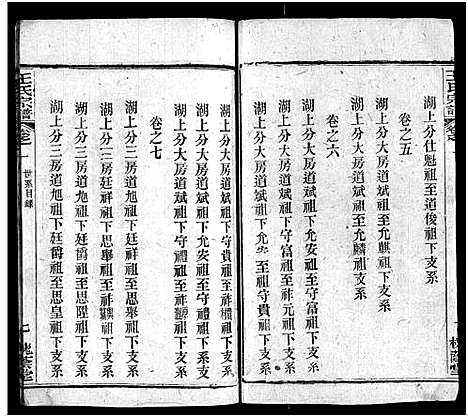 王氏宗譜
湖上分仕魁祖至道俊祖下支系
卷之五
湖上分大房道斌祖下允麒祖下支系
湖上分大房道斌祖至允麒祖下支系
卷之六
湖上分大房道斌祖下允安至守富祖下支系
湖上分大房道斌祖下守富祖至祚元祖下支系
湖上分大房道斌祖下允安至守貴祖下支系
湖上分大房道斌祖下守貴祖至祚祖下支系
湖上分大房道斌祖下允安祖至守禮祖下支系
湖上分大房道斌祖下守禮祖至祚祖下支系
卷之七
湖上分三房道旭祖下廷祥祖至思舉祖下支系
湖上分三房廷祥祖下思舉祖至祚祖下支系
湖上分三房道旭祖下廷爵祖至思陞祖下支系
湖上分三房道旭祖下廷爵祖至思皇祖下支系
王氏宗譜
卷
世系目錄
七
槐蔭堂